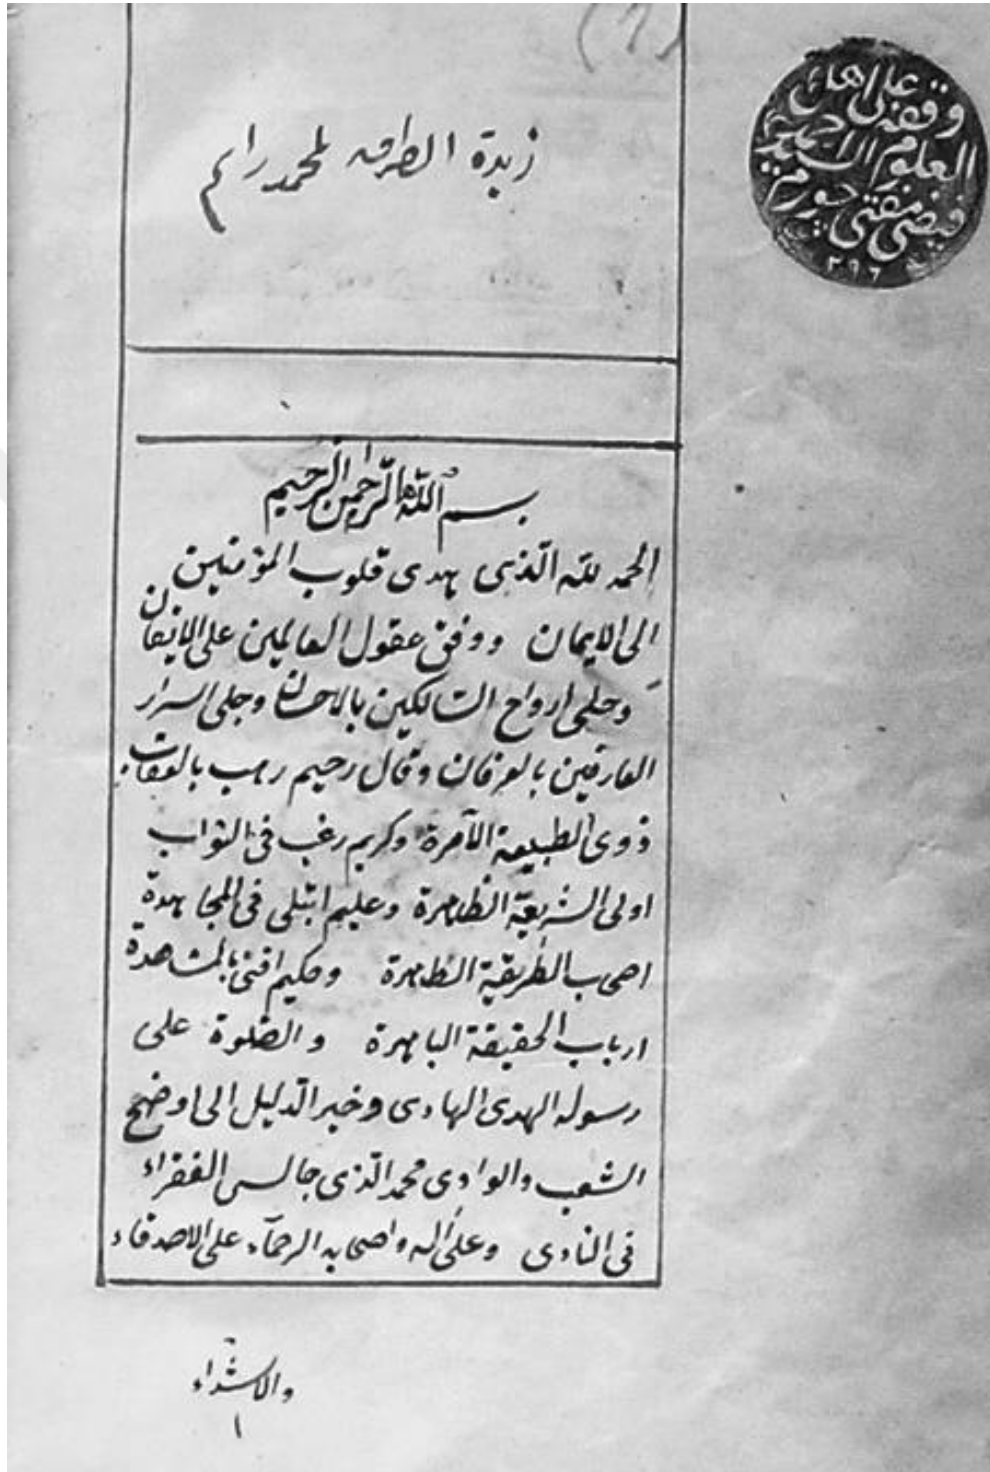 (٦)
زبدة الطرق لمحمد راسم
وقفه على اهل
العلوم السيد احمد
فيضى مفتى چورم
٢٩٦
بسم الله الرحمن الرحيم
الحمد لله الّذى هدى قلوب المؤمنين
الى الايمان ووفق عقول العالمين على الايقان
وحلى ارواح السّالكين بالاحسان وجلى اسرار
العارفين بالعرفان وقال رحيم رهب بالعقاب
ذوى الطبيعة الآمرة وكريم رغب فى الثواب
اولى الشريعة الطّاهرة وعليم ابتلى فى المجاهدة
اصحاب الطريقة الظاهرة وحكيم افنى بالمشاهدة
ارباب الحقيقة الباهرة والصّلوة على
رسوله الهدى الهادى وخير الدّليل الى اوضح
الشعب والوادى محمد الّذى جالس الفقراء
فى النادى وعلى اله واصحابه الرحمآء على الاصدقاء
والاشداء
١